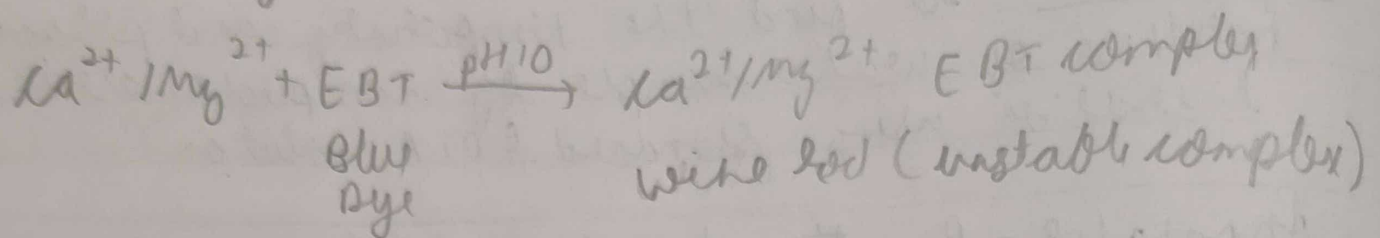 Ca²⁺/Mg²⁺ + EBT —pH 10→ Ca²⁺/Mg²⁺ EBT complex
Blue wine red (unstable complex)
Dye